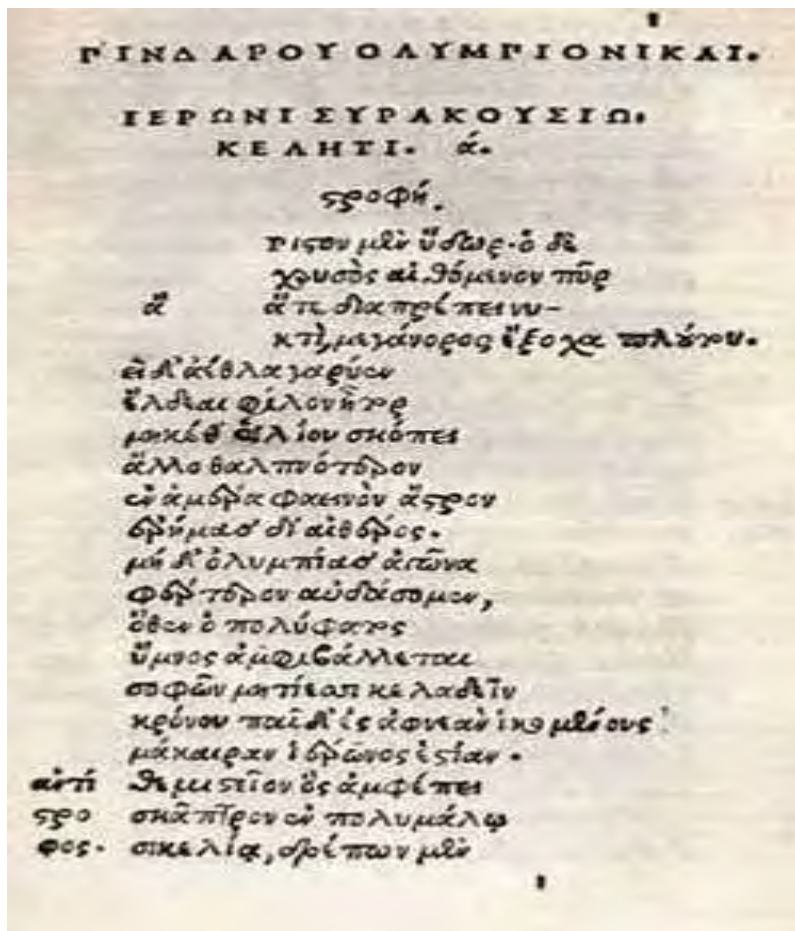 ΠΙΝΔΑΡΟΥ ΟΛΥΜΠΙΟΝΙΚΑΙ.
ΙΕΡΩΝΙ ΣΥΡΑΚΟΥΣΙΩ.
ΚΕΛΗΤΙ. ά.
στροφή.
ριστον μὲν ὕδωρ· ὁ δὲ
χρυσὸς αἰθόμενον πῦρ
ἄ ἅτε διαπρέπει νυ-
κτὶ, μεγάνορος ἔξοχα πλούτου.
εἰ δ' ἄεθλα γαρύεν
ἔλδεαι φίλον ἦτορ
μηκέθ' ἁελίου σκόπει
ἄλλο θαλπνότερον
ἐν ἁμέρᾳ φαεινὸν ἄστρον
ἐρήμας δι' αἰθέρος.
μὴ δ' ὀλυμπίας ἀγῶνα
φέρτερον αὐδάσομεν,
ὅθεν ὁ πολύφατος
ὕμνος ἀμφιβάλλεται
σοφῶν μητίεσσι κελαδεῖν
κρόνου παῖδ' ἐς ἀφνεὰν ἱκομένους
μάκαιραν ἱέρωνος ἑστίαν.
ἀντί θεμιστεῖον ὃς ἀμφέπει
στρο σκᾶπτρον ἐν πολυμάλῳ
φος. σικελίᾳ, δρέπων μὲν